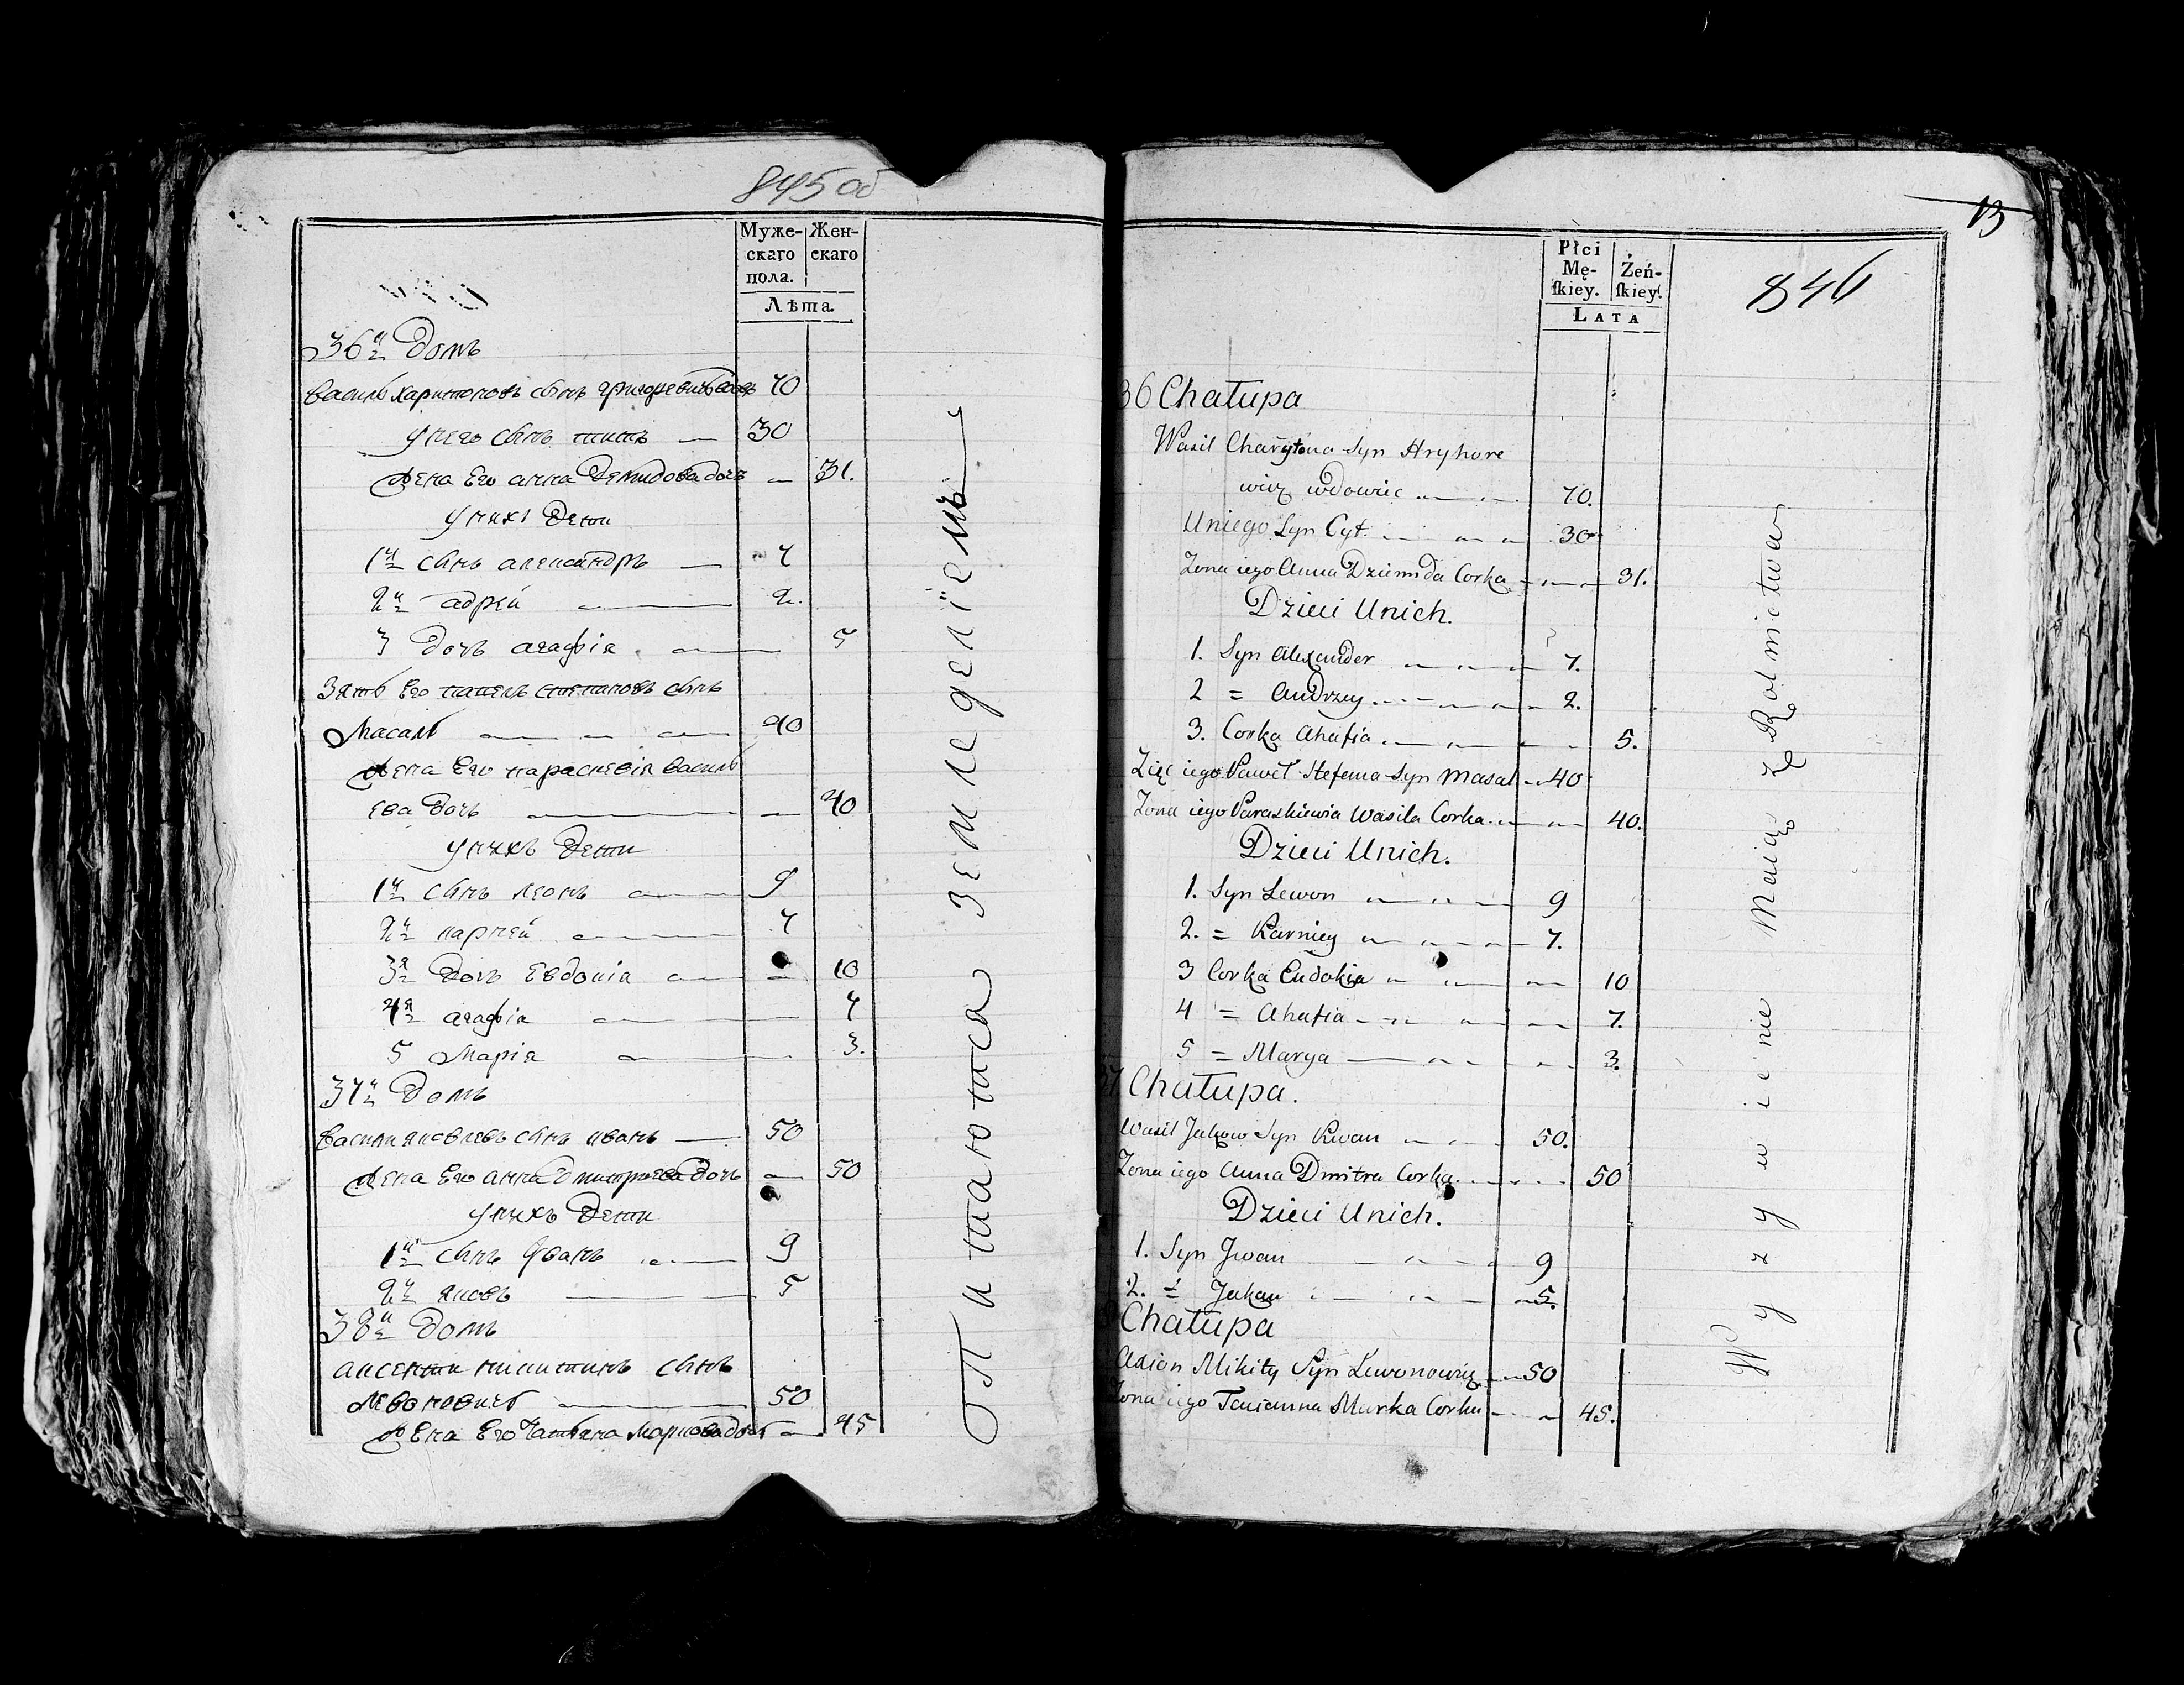 845 об
Муже-
скаго
пола.
Жен-
скаго
Лѣта.
36й Домъ
Василь Харитоновъ сынъ Григоревичь вдов 70
у него сынъ титъ — 30
Жена Его анна Демидова дочь — 31.
у нихъ Дети
1й сынъ александръ — 7
2й адрей — 2.
3 Дочь агафія — 5
Зять Его павелъ степановъ сынъ
Масалъ — 40
Жена Его параскевія Василь
ева Дочь — 40
у нихъ Дети
1й сынъ леонъ — 9
2й карней — 7
3я Дочь Евдокія — 10
4я агафія — 7
5 Марія — 3.
37й Домъ
Васили яковлевъ сынъ кванъ — 50
Жена Его анна Дмитриева Дочь — 50
у нихъ Дети
1й сынъ Иванъ — 9
2й яковъ — 5
38й Домъ
аксенти никитинъ сынъ
Левоновичъ — 50
Жена Его Татьяна Маркова дочь — 45
Питаются земледеліемъ
13
846
Płci
Mę-
skiey.
Żeń-
skiey.
LATA
36 Chałupa
Wasil Charytona Syn Hryhore
wicz wdowiec — 70.
Uniego Syn Cyt. — 30
Zona iego Anna Dziemida Corka — 31.
Dzieci Unich.
1. Syn Alexander — 7.
2 = Andrzey — 2.
3. Corka Ahafia — 5.
Zięć iego Paweł Stefana Syn Masal — 40
Zona iego Paraskiewia Wasila Corka — 40.
Dzieci Unich.
1. Syn Lewon — 9
2. = Karniey — 7.
3 Corka Eudokia — 10
4 = Ahafia — 7.
5 = Marya — 3.
37 Chałupa.
Wasil Jakow Syn Kwan — 50.
Zona iego Anna Dmitra Corka — 50
Dzieci Unich.
1. Syn Jwan — 9
2. = Jakau — 5.
Chałupa
Axion Mikity Syn Lewonowicz — 50
Zona iego Tacianna Marka Corka — 45.
Wyzywienie Maią Zę Rolnictwa